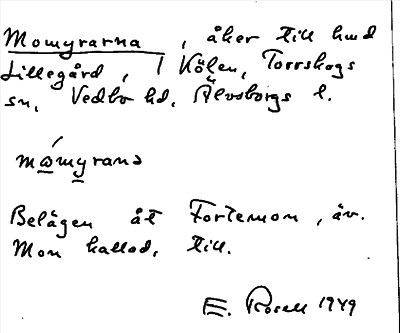 Momyrarna, åker till hmd
Lillegård, i Kölen, Torrskogs
sn, Vedbo hd, Älvsborgs l.
måmyrana
Belägen åt Fortemon, äv.
Mon kallad, till.
E. Rosell 1949